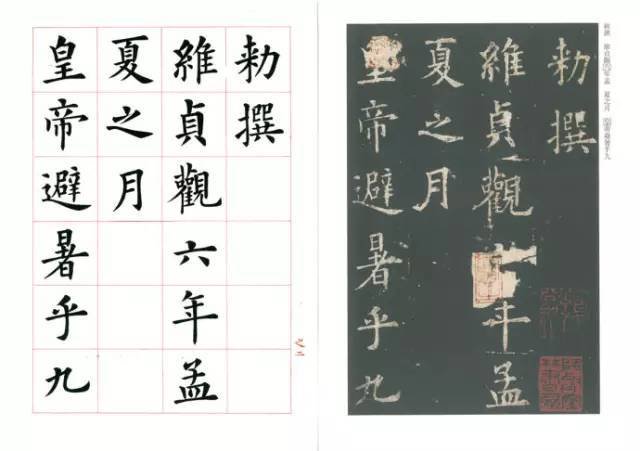 勅撰
維貞觀六年孟
夏之月
皇帝避暑乎九
勅撰
維貞觀年孟
夏之月
皇帝避暑乎九